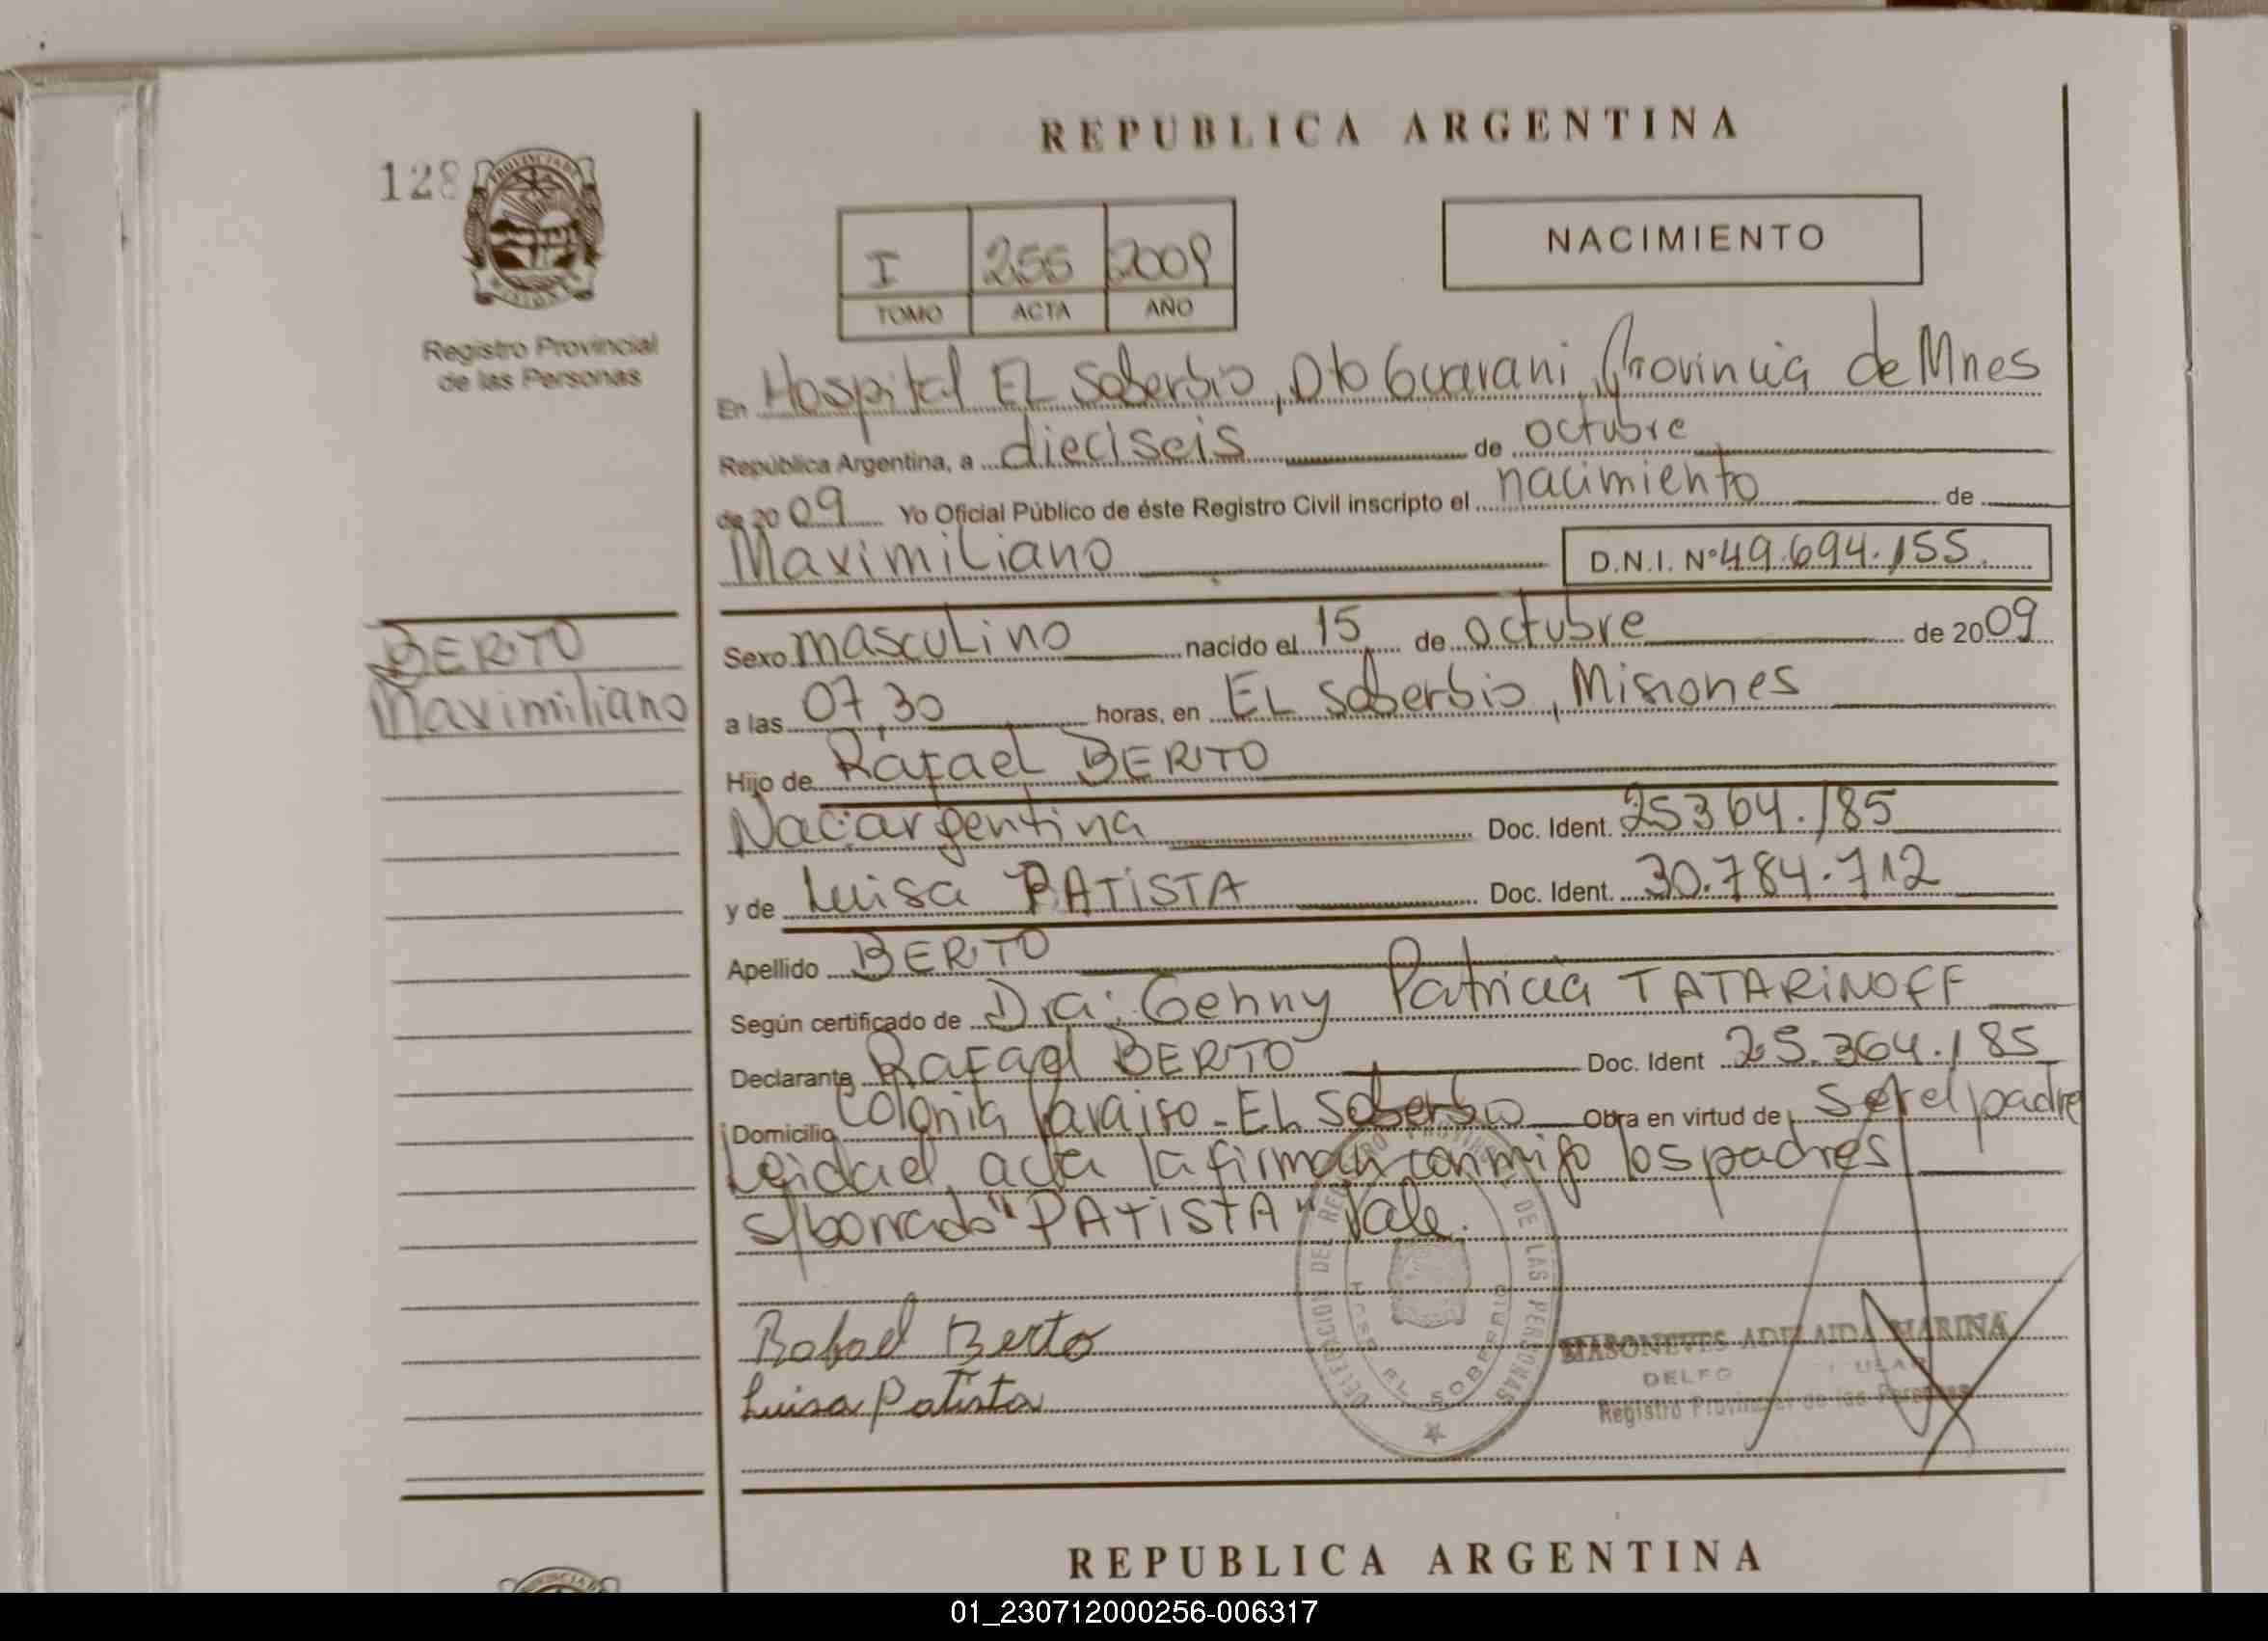 REPUBLICA ARGENTINA
128
PROVINCIA DE
MISIONES
Registro Provincial
de las Personas
I 255 2009
TOMO ACTA AÑO
NACIMIENTO
En Hospital EL Soberbio, Dto Guarani, Provincia de Mnes
República Argentina, a dieciseis de octubre
de 2009 Yo Oficial Público de éste Registro Civil inscripto el nacimiento de
Maximiliano D.N.I. Nº 49.694.155
BERTO
Maximiliano
Sexo masculino nacido el 15 de octubre de 2009
a las 07,30 horas, en EL Soberbio, Misiones
Hijo de Rafael BERTO
Nac: argentina Doc. Ident. 25364.185
y de Luisa PATISTA Doc. Ident. 30.784.712
Apellido BERTO
Según certificado de Dra: Genny Patricia TATARINOFF
Declarante Rafael BERTO Doc. Ident 25.364.185
Domicilio Colonia Paraiso - EL Soberbio Obra en virtud de ser el padre
Leida el acta la firman conmigo los padres
s/borrado "PATISTA" Vale.
DELEGACION DEL REGISTRO PROVINCIAL DE LAS PERSONAS
EL SOBERBIO
Rafael Berto
Luisa Patista
MASONEVES ADELAIDA MARINA
Registro Provincial de las Personas
REPUBLICA ARGENTINA
01_230712000256-006317